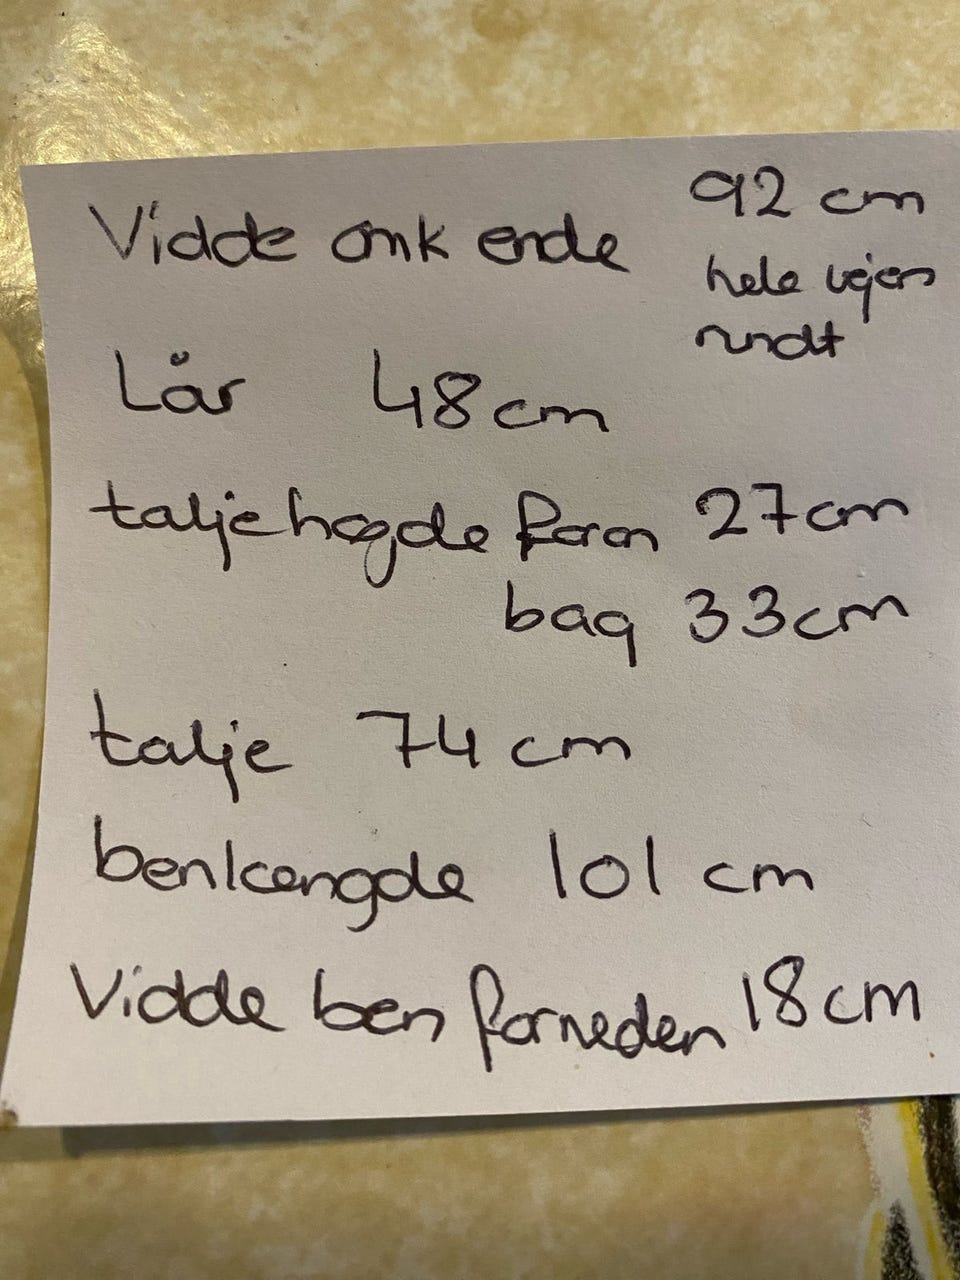 Vidde omk ende 92 cm
hele vejen
rundt
Lår 48 cm
taljehøgde foran 27 cm
bag 33 cm
talje 74 cm
benlængde 101 cm
Vidde ben forneden 18 cm